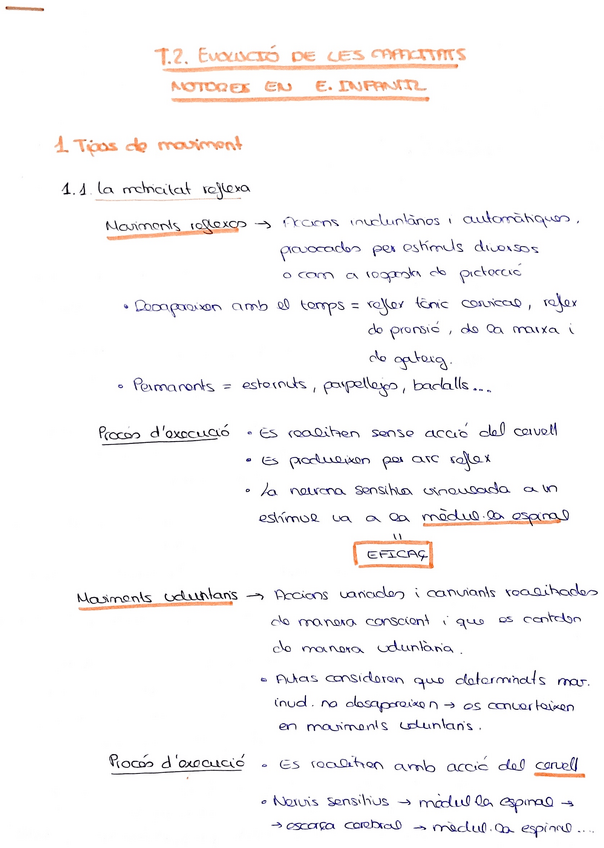 T.2. EVOLUCIÓ DE LES CAPACITATS
MOTORES EN E. INFANTIL
1. Tipos de moviment
1.1. La motricitat reflexa
Moviments reflexos → Accions involuntàries i automàtiques,
provocades per estímuls diversos
o com a resposta de protecció
• Desapareixen amb el temps = reflex tònic cervical, reflex
de prensió, de la marxa i
de gateig.
• Permanents = esternuts, parpellejos, badalls...
Procés d'execució • Es realitzen sense acció del cervell
• Es produeixen per arc reflex
• La neurona sensitiva vinculada a un
estímul va a la mèdul·la espinal
"
EFICAÇ
Moviments voluntaris → Accions variades i canviants realitzades
de manera conscient i que es controlen
de manera voluntària.
• Autas consideren que determinats mov.
invol. no desapareixen → es converteixen
en moviments voluntaris.
Procés d'execució • Es realitzen amb acció del cervell
• Nervis sensitius → mèdul·la espinal →
→ escorça cerebral → mèdul·la espinal....